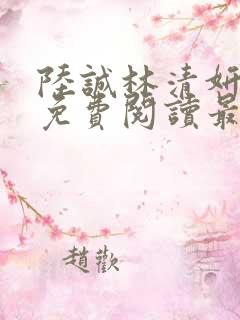 陸誠林清妍
免費閱讀最
趙歡